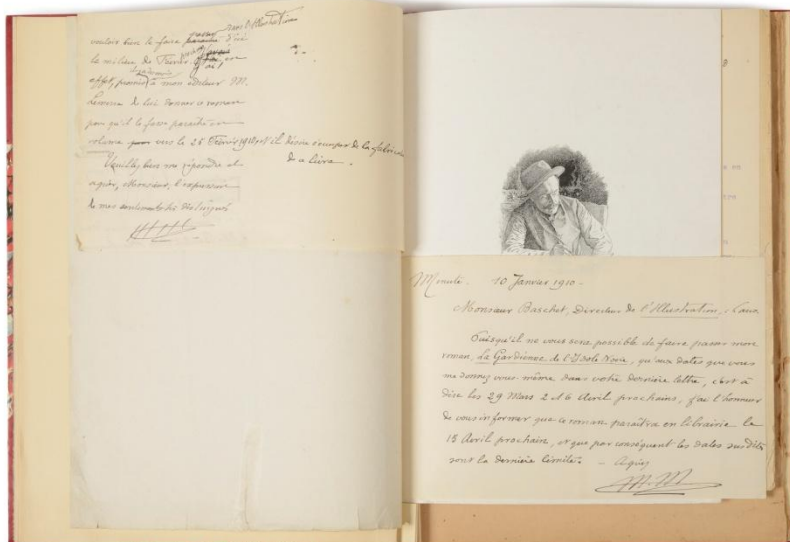 dans l'Illustration
vouloir bien le faire passer d'ici
le milieu de Février. en
effet, promis à mon éditeur M.
Lemerre de lui donner ce roman
pour qu'il le fasse paraître en
volume vers le 25 Février 1910, et il désire s'occuper de la fabrication
de ce livre.
Veuillez bien me répondre et
agréer, Monsieur, l'expression
de mes sentiments très distingués
Minute. 10 Janvier 1910.
Monsieur Baschet, Directeur de l'Illustration,
Puisqu'il ne vous sera possible de faire passer mon
roman, La Gardienne de l'Idole Noire, qu'aux dates que vous
me donnez vous même dans votre dernière lettre, c'est à
dire les 29 Mars 2 et 6 Avril prochains, j'ai l'honneur
de vous informer que ce roman paraîtra en librairie le
15 Avril prochain, et que par conséquent les dates sus dites
sont la dernière limite. - Agréez